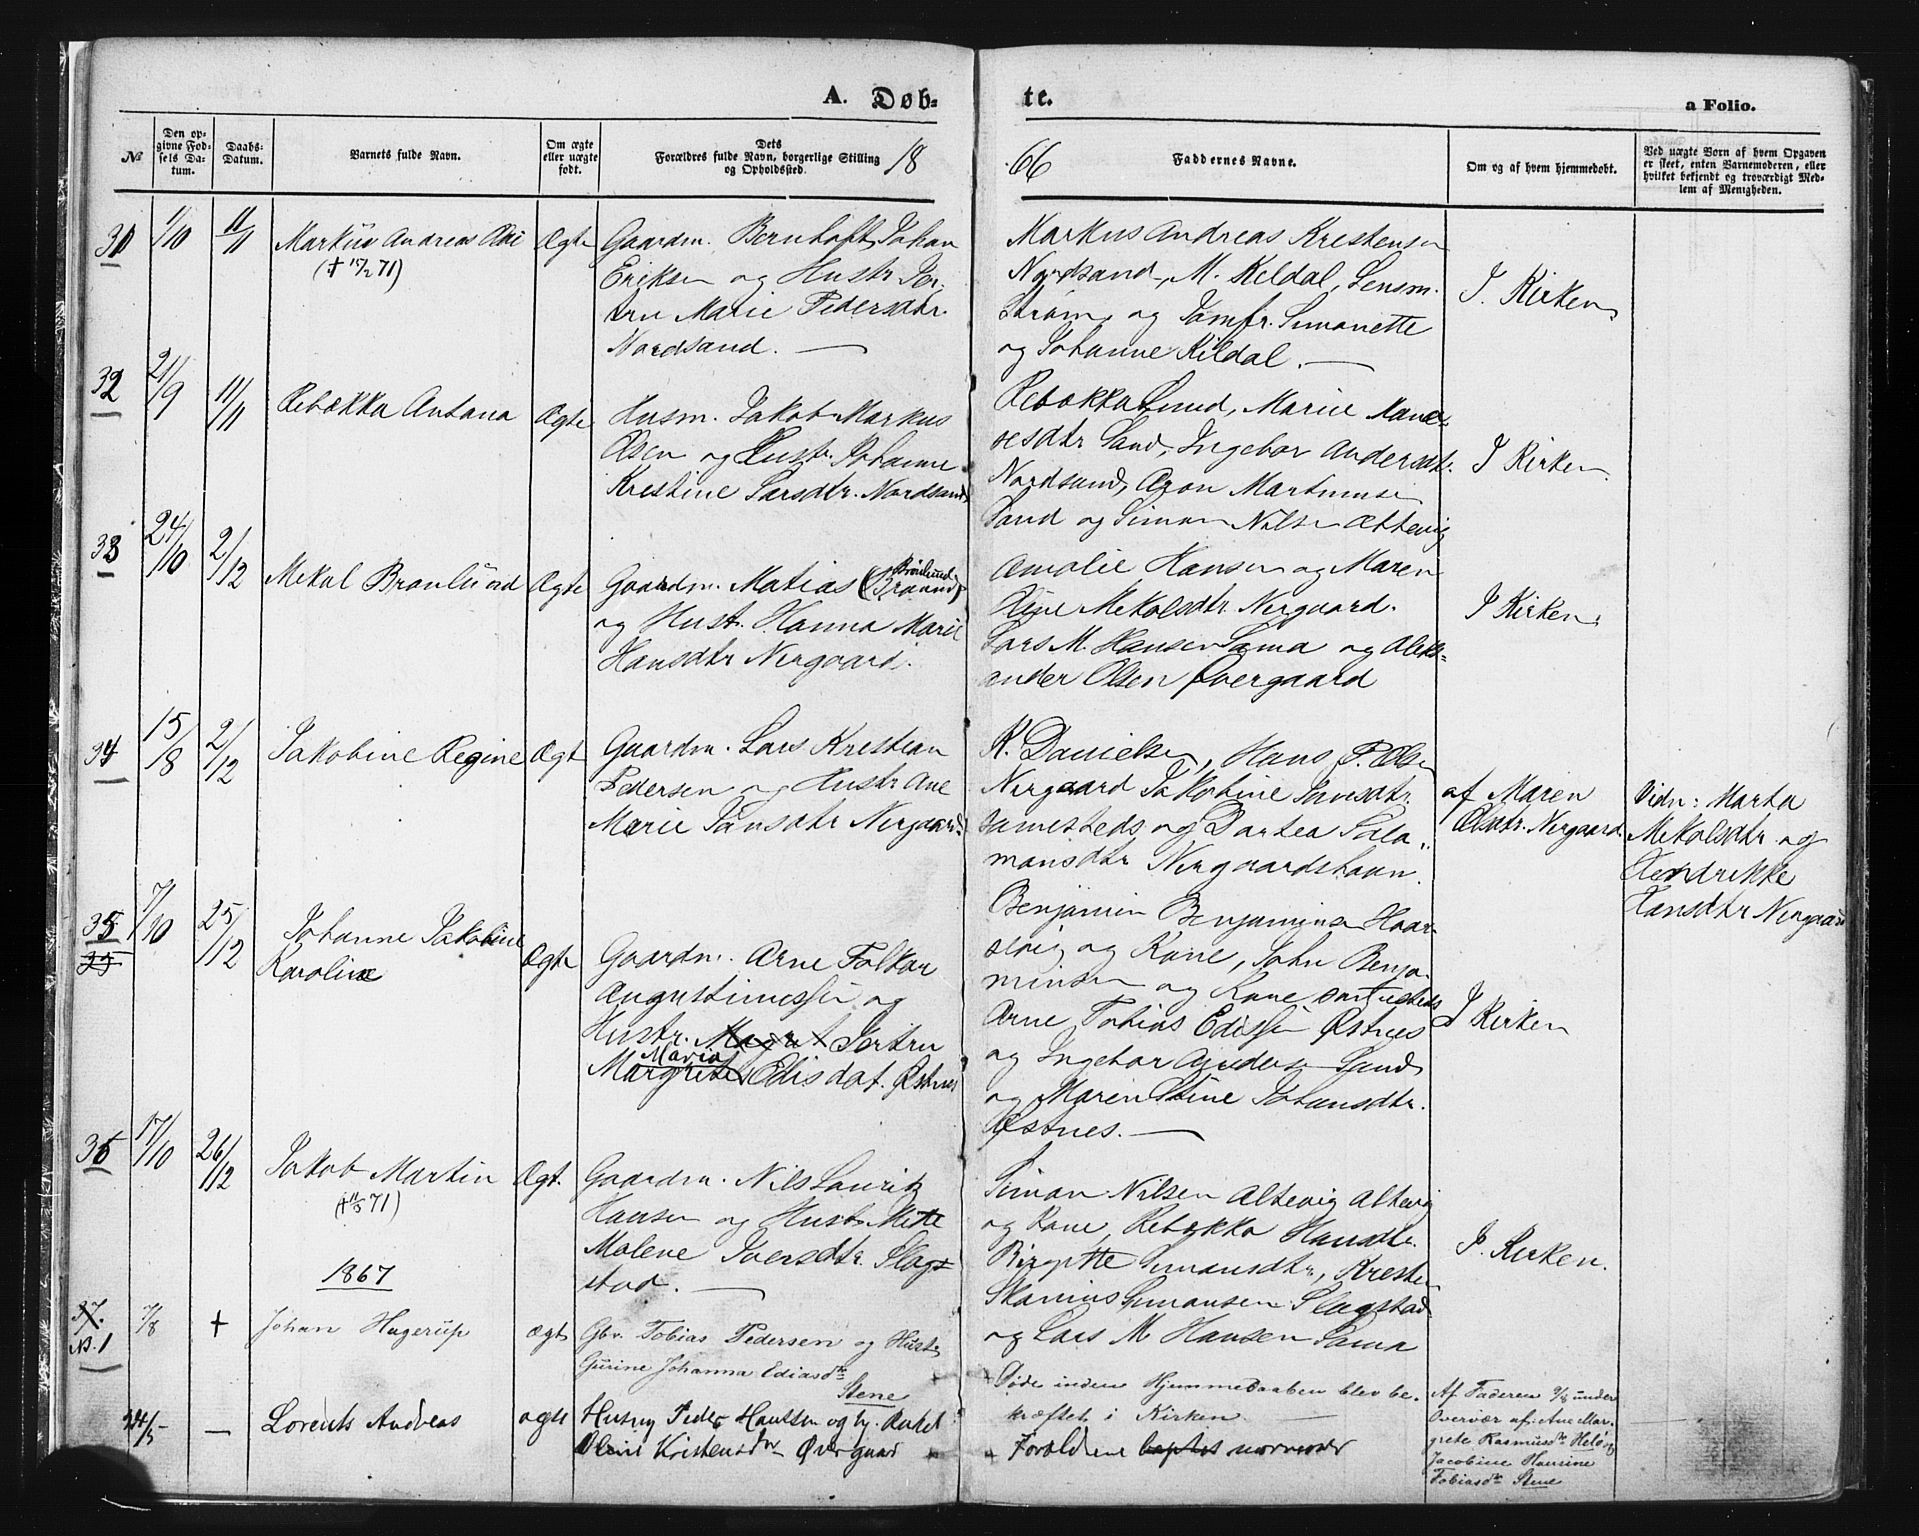 A. Døb-
te.
a Folio.
№
Den op-
givne Fød-
sels Da-
tum.
Daabs-
Datum.
Barnets fulde Navn.
Om ægte
eller uægte
født.
Dets
Forældres fulde Navn, borgerlige Stilling
og Opholdssted.
18
66
Faddernes Navne.
Om og af hvem hjemmedøbt.
Ved uægte Børn af hvem Opgaven
er skeet, enten Barnemoderen, eller
hvilket bekjendt og troværdigt Med-
lem af Menigheden.
31
1/10
11/11
Markus Andreas
(† 15/2 71)
Ægte
Gaardm. Bernhoft Johan
Eriksen og Hustr. Jer-
tru Marie Pedersdtr.
Nordsand.
Markus Andreas Kristensen
Nordsand, M. Kildal, Lensm.
Strøm, og Jomfr. Simonette
og Johanne Kildal.
I Kirken
32
21/9
11/11
Rebækka Antona
Ægte
Husm. Jakob Markus
Olsen og Hustr. Johanne
Kristine Larsdtr. Nordsand
Rebækka Lund, Marie
sesdtr Sand, Ingebor Andersdtr.
Nordsand, Aron Martinusen
Sand og Simon Nilsen Ættevig
I Kirken
33
24/10
2/12
Mekal Brønlund
Ægte
Gaardm. Matias (Brønlund)
og Hust. Hanna Marie
Hansdtr Nergaard.
Amalie Hansen og Maren
Oline Mekalsdtr. Nergaard.
Lars M. Hansen Sama og Aleks-
ander Olsen Øvergaard
I Kirken
34
15/8
2/12
Jakobine Regine
Ægt
Gaardm. Lars Kristian
Pedersen og Hustr Ane
Marie Jansdtr Nergaard.
K. Danielsen, Hans P. Olsen
Nergaard Jakobine Jansdtr.
samesteds og Dortea Salo-
monsdtr Nergaardshavn.
af Maren
Olsdtr. Nergaard.
Vidn: Marta
Mekalsdtr og
Hendrikke
Hansdtr Nergaard
35
7/10
25/12
Johanne Jakobine
Karoline
Ægte
Gaardm. Arne Falkor
Augustinussen og
Hustr. Jertru
Maria
Margrete Edisdat. Østnes
Benjamin Benjaminsen Haar-
vig og Kone, John Benja-
minsen og Kone samesteds
Arne Tobias Edissen Østnes
og Ingebor Andersen Sand
og Maren Stine Johansdtr.
Østnes.
I Kirken
36
17/10
26/12
Jakob Martin
(† 11/5 71)
Ægt.
Gaardm. Nils Lauritz
Hansen og Hustr Mette
Malene Iversdtr. Slag-
stad.
Simon Nilsen Altevig Altevig
og Kone, Rebækka Hansdtr.
Birgitte Simonsdtr, Kristen
Skanius Simonsen Slagstad
og Lars M Hansen Sama
I. Kirken.
1867
37.
No. 1
7/8
+
Johan Hagerup
ægte
Gbr. Tobias Pedersen og Hustr
Gurine Johanna Ediasdtr
Stene
+ Døde inden Hjemmedaaben blev be-
kræftet i Kirken.
Af Faderen 9/8 under
Overvær af: Ane Mar-
grete Rasmusdtr Helø og
Jacobine Hansine
Tobiasdtr Stene
24/5
—
Lorents Andreas
ægte
Husmy Peder Hanssen og h. Rakel
Oline Kristensdtr Øvergaard
+ Forældrene